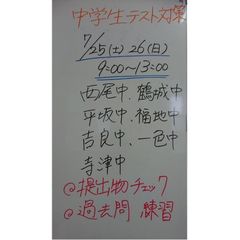 中学生テスト対策
7/25(土) 26(日)
9:00〜13:00
西尾中、鶴城中
平坂中、福地中
吉良中、一色中
寺津中
◎提出物チェック
◎過去問 練習